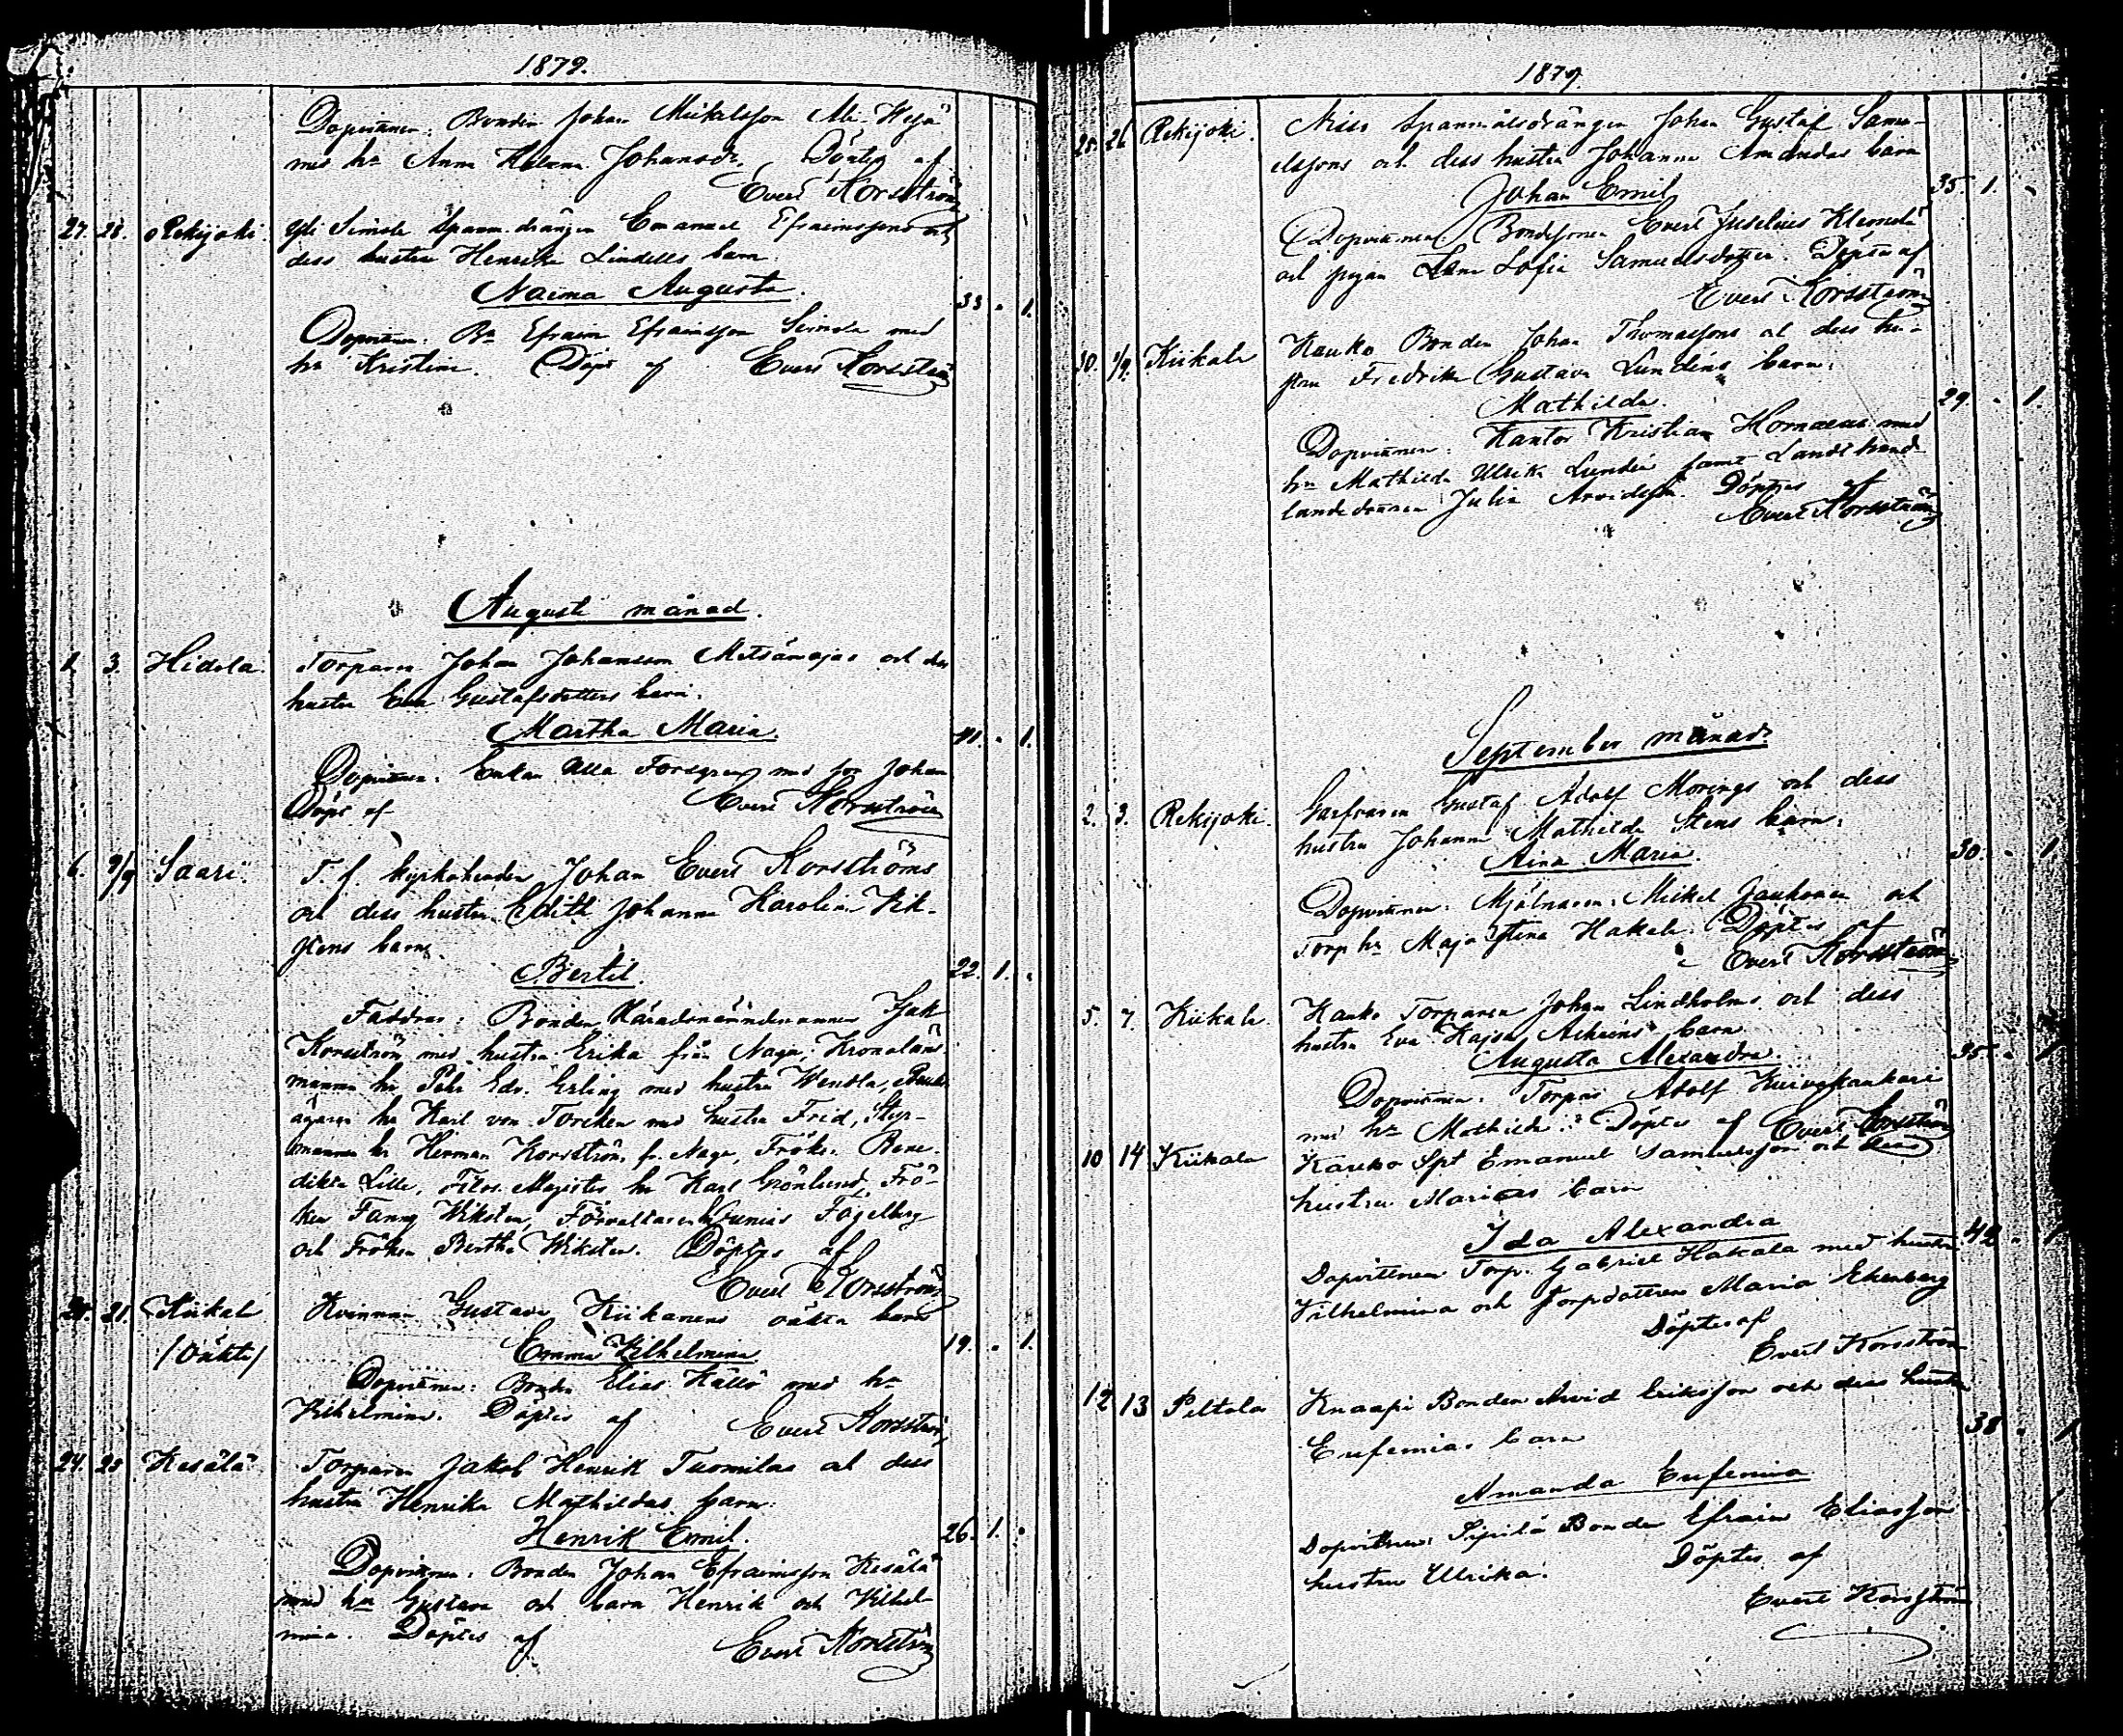 1879.
Dopvittnen: Bonden Johan Mickelsson Ali-Kesä
med hu Anna Helena Johansdr. Döptes af
Evert Korsström
27. 28. Rekijoki. Yli Simola Spanm. drängen Emanuel Efraimssons och
dess hustru Henrika Lindells barn.
Naima Augusta.
33 - 1.
Dopvittnen: Bn Efraim Efraimsson Simola med
hu Kristina. Döpt af Evert Korsström
Augusti månad.
1. 3. Hidola. Torparen Johan Johansson Metsämajas och dess
hustru Eva Gustafsdotters barn.
Martha Maria.
41. - 1.
Dopvittnen: Enkan Ulla Forsgren med son Johan
Döpt af Evert Korsström
6. 9/9 Saari. T. f. kyrkoherden Johan Evert Korsströms
och dess hustru Edith Johanna Karolina Wik-
stens barn.
Bertil.
22. 1. -
Faddrar: Bonden, Häradsnämndemannen Isak
Korsström med hustru Erika från Nagu, Kronoläns-
mannen hr Pehr Edv. Erling med hustru Wendla,
ägaren hr Karl von Torcken med hustru Frid, Styr-
mannen hr Herman Korsström fr. Nagu, Fröken Bene-
dikta Lille, Filos. Magister hr Karl Grönlund, Frö-
ken Fanny Wiksten, Förvaltaren Junius Fågelberg
och Fröken Bertha Wiksten. Döptes af
Evert Korsström
21. Kiikala Kvinnan Gustava Kiikanens oäkta barn
/Oäkta/ Emma Vilhelmina
19. - 1.
Dopvittnen: Bonden Elias Källö med hu
Vilhelmina. Döptes af Evert Korsström
24. 25 Kesälä Torparen Jakob Henrik Tuomilas och dess
hustru Henrika Mathildas barn.
Henrik Emil.
26. 1. -
Dopvittnen: Bonden Johan Efraimsson Kesälä
med hu Gustava och barn Henrik och Vilhel-
mina. Döptes af Evert Korsström
1879.
25. 26 Rekijoki. Nisu Spanmålsdrängen Johan Gustaf Samu-
elssons och dess hustru Johanna Amandas barn
Johan Emil
35. 1. -
Dopvittnen: Bondesonen Evert Juselius Klemelä
och pigan Lena Sofia Samuelsdotter. Döptes af
Evert Korsström
30. 1/9. Kiikala Kauko Bonden Johan Thomassons och dess hu-
stru Fredrika Gustava Lundéns barn.
Mathilda.
29. - 1.
Dopvittnen: Kantor Kristian Hornaeus med
hu Mathilda Ulrika Lundén samt Landthand-
lande Julia Arvidsson. Döptes af
Evert Korsström
September månad.
2. 3. Rekijoki. Garfvaren Gustaf Adolf Morings och dess
hustru Johanna Mathilda Stens barn.
Aina Maria.
30. - 1.
Dopvittnen: Mjölnaren Mickel Jauhonen och
Torp hu Maja Stina Hakala. Döptes af
Evert Korsström
5. 7. Kiikala. Kauko Torparen Johan Lindholms och dess
hustru Eva Kajsa barn
Augusta Alexandra.
35. - 1
Dopvittnen: Torparen Adolf
med hu Mathilda. Döptes af Evert Korsström
10 14 Kiikala Kauko Spt Emanuel Samuelsson och dess
hustru Marias barn
Ida Alexandra
42 - 1
Dopvittnen Torp. Gabriel Hakala med hustru
Vilhelmina och torpdottren Maria Ekenberg
Döptes af
Evert Korsström
12 13 Peltola Knaapi Bonden Arvid Eriksson och dess hustru
Eufemias barn
38 - 1
Amanda Eufemia
Dopvittnen: Sipilä Bonden Efraim Eliasson
hustru Ulrika. Döptes af
Evert Korsström